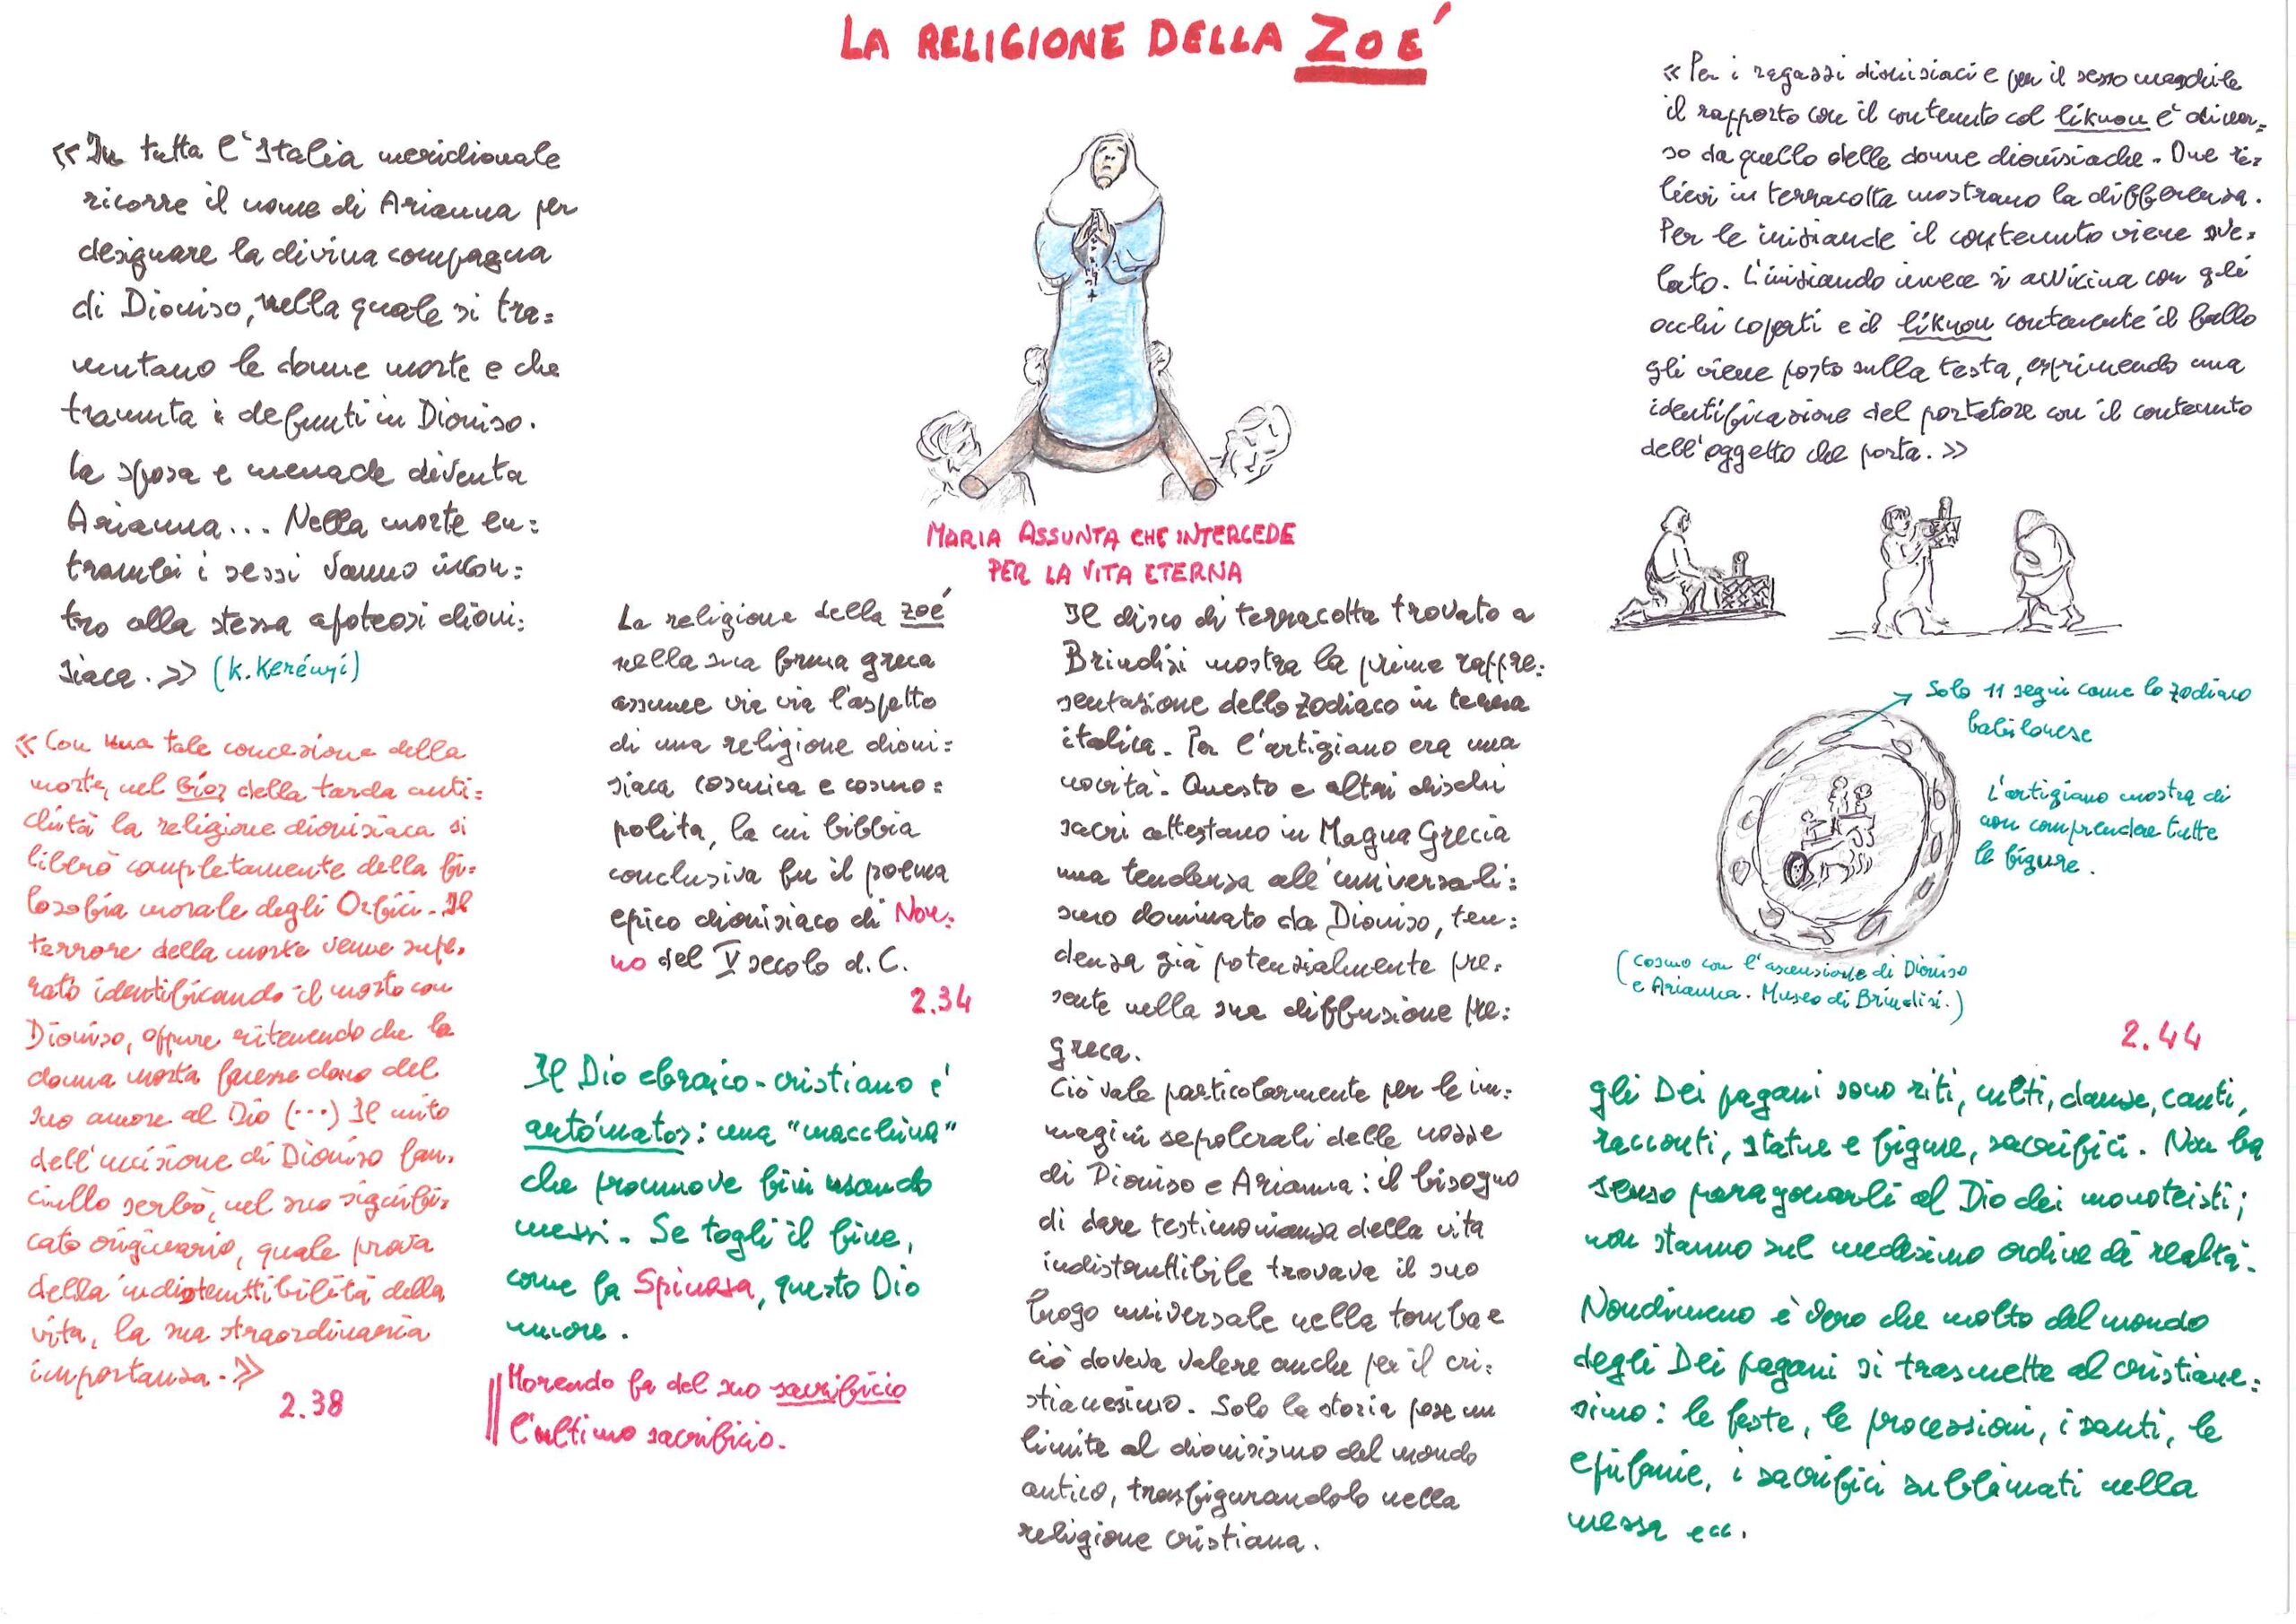 LA RELIGIONE DELLA ZOÉ
«In tutta l'Italia meridionale
ricorre il nome di Arianna per
designare la divina compagna
di Dioniso, nella quale si tra=
mutano le donne morte e che
tramuta i defunti in Dioniso.
La sposa e menade diventa
Arianna... Nella morte en=
trambi i sessi vanno incon=
tro alla stessa apoteosi dioni=
siaca.» (K. Kerényi)
«Con una tale concezione della
morte, nel bíos della tarda anti=
chità la religione dionisiaca si
liberò completamente della fi=
losofia morale degli Orfici. Il
terrore della morte venne supe=
rato identificando il morto con
Dioniso, oppure ritenendo che la
donna morta facesse dono del
suo amore al Dio (...) Il mito
dell'uccisione di Dioniso fan=
ciullo serbò, nel suo signifi=
cato originario, quale prova
della indistruttibilità della
vita, la sua straordinaria
importanza.»
2.38
MARIA ASSUNTA CHE INTERCEDE
PER LA VITA ETERNA
La religione della zoé
nella sua forma greca
assume via via l'aspetto
di una religione dioni=
siaca cosmica e cosmo=
polita, la cui bibbia
conclusiva fu il poema
epico dionisiaco di Non=
no del V secolo d.C.
2.34
Il Dio ebraico-cristiano è
autómatos: una "macchina"
che promuove fini usando
mezzi. Se togli il fine,
come fa Spinoza, questo Dio
muore.
Morendo fa del suo sacrificio
l'ultimo sacrificio.
Il disco di terracotta trovato a
Brindisi mostra la prima rappre=
sentazione dello zodiaco in terra
italica. Per l'artigiano era una
novità. Questo e altri dischi
sacri attestano in Magna Grecia
una tendenza all'universali=
smo dominato da Dioniso, ten=
denza già potenzialmente pre=
sente nella sua diffusione pre=
greca.
Ciò vale particolarmente per le im=
magini sepolcrali delle nozze
di Dioniso e Arianna: il bisogno
di dare testimonianza della vita
indistruttibile trovava il suo
luogo universale nella tomba e
ciò doveva valere anche per il cri=
stianesimo. Solo la storia pose un
limite al dionisismo del mondo
antico, trasfigurandolo nella
religione cristiana.
«Per i ragazzi dionisiaci e per il sesso maschile
il rapporto con il contenuto col líknon è diver=
so da quello delle donne dionisiache. Due ri=
lievi in terracotta mostrano la differenza.
Per le iniziande il contenuto viene sve=
lato. L'iniziando invece si avvicina con gli
occhi coperti e il líknon contenente il fallo
gli viene posto sulla testa, esprimendo una
identificazione del portatore con il contenuto
dell'oggetto che porta.»
Solo 11 segni come lo zodiaco
babilonese
L'artigiano mostra di
non comprendere tutte
le figure.
(Cosmo con l'ascensione di Dioniso
e Arianna. Museo di Brindisi.)
2.44
Gli Dei pagani sono riti, culti, danze, canti,
racconti, statue e figure, sacrifici. Non ha
senso paragonarli al Dio dei monoteisti;
non stanno sul medesimo ordine di realtà.
Nondimeno è vero che molto del mondo
degli Dei pagani si trasmette al cristiane=
simo: le feste, le processioni, i santi, le
epifanie, i sacrifici sublimati nella
messa ecc.